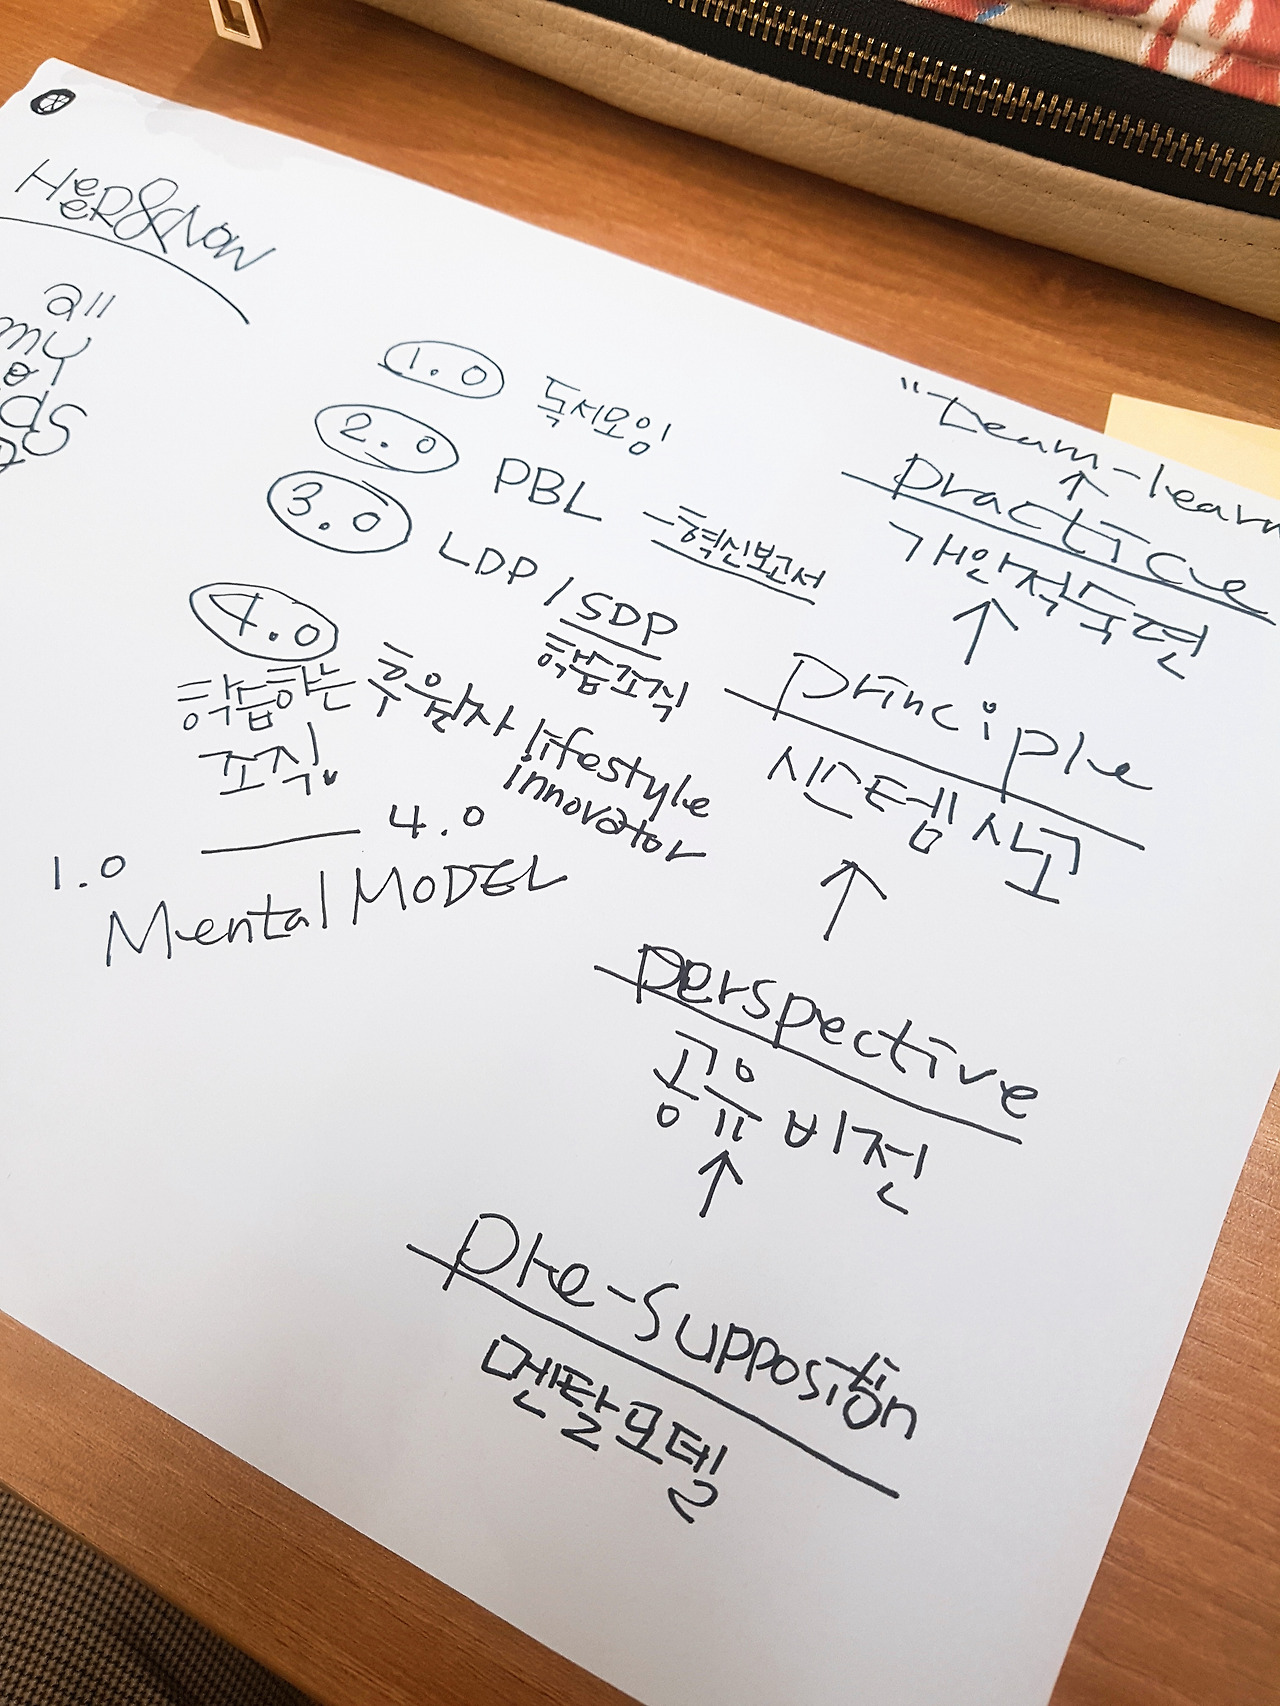 HEER&NOW
all
my
1.0 독서모임
2.0 PBL - 혁신보고서
3.0 LDP / SDP
학습조직
4.0
학습하는 후원자 lifestyle
조직. innovator
1.0 — 4.0
Mental MODEL
"Team-learn
↑
practice
개인적숙련
↑
principle
시스템 사고
↑
perspective
공유 비전
↑
pre-supposition
멘탈모델